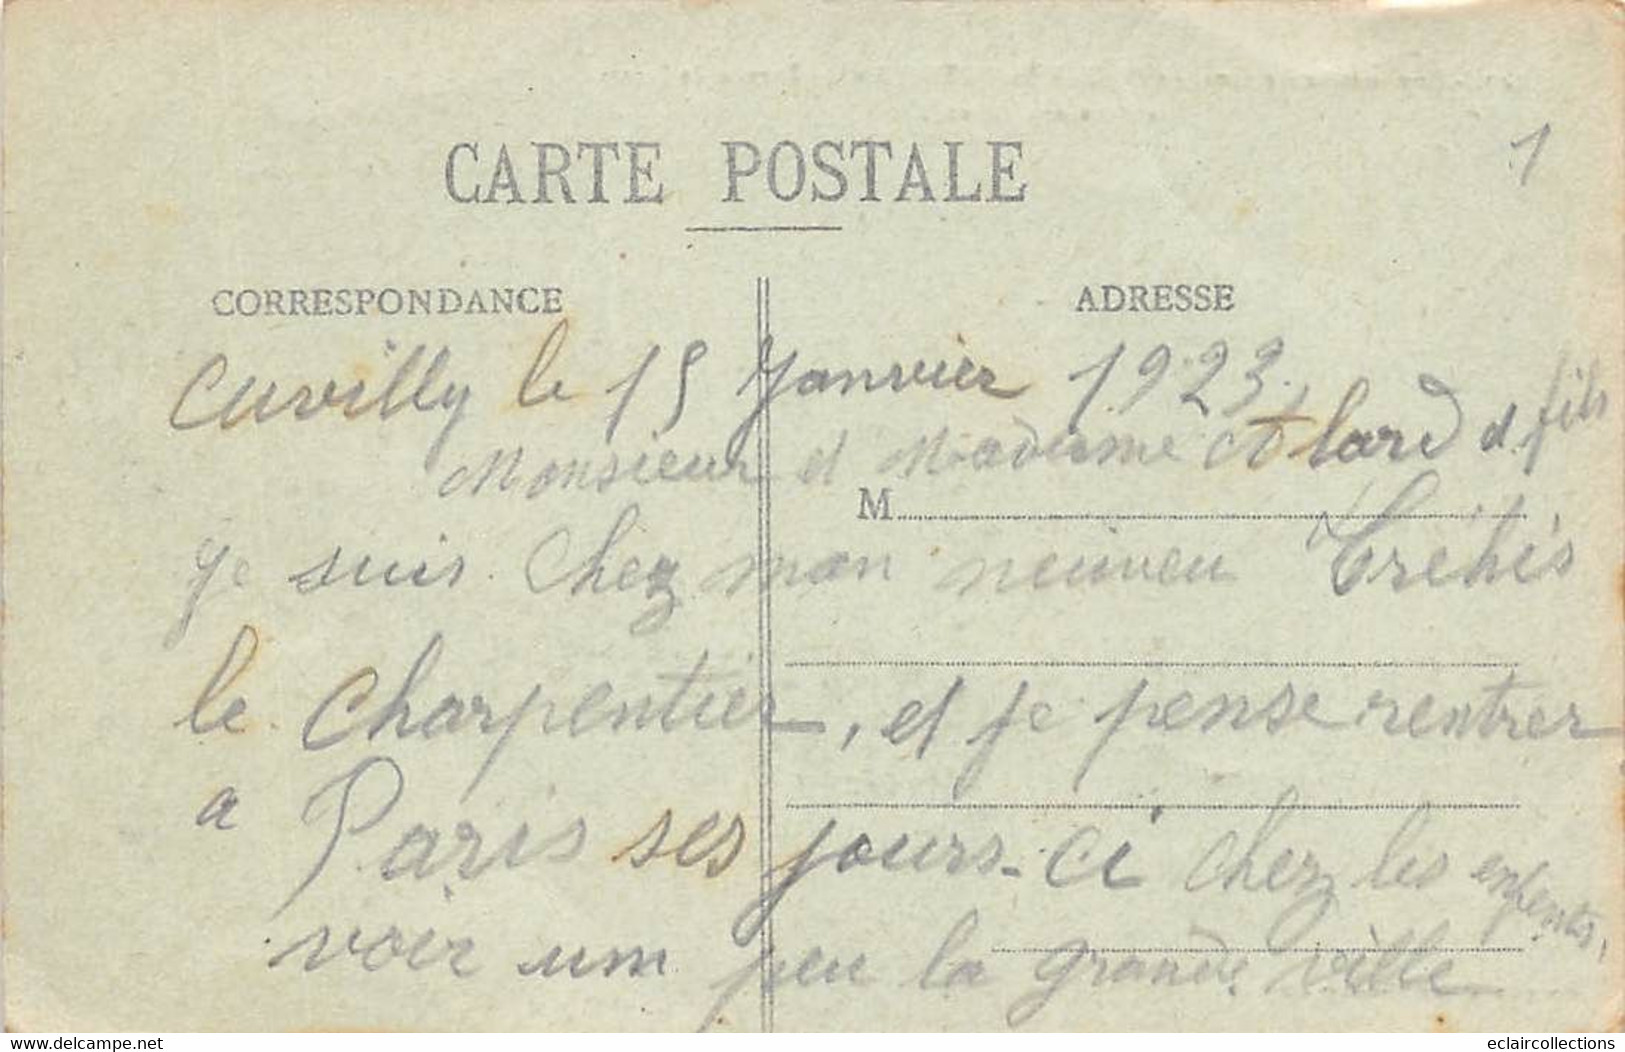 CARTE POSTALE
1
CORRESPONDANCE
ADRESSE
Cuvilly le 15 Janvier 1923,
Monsieur et Madame Allard et fils
M
je suis chez mon neuveu
le charpentier, et je pense rentrer
a Paris ses jours-ci chez les enfents,
voir um peu la grande ville
www.delcampe.net
eclaircollections